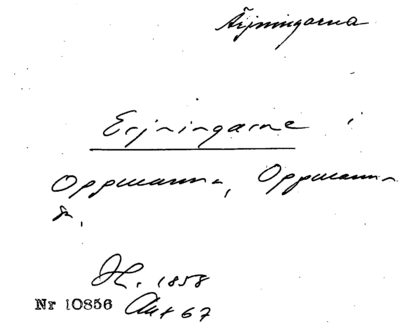 Ärjningarna
Erjningarne i
Oppmanna, Oppmanna
sn.
1858
Nr 10856 Akt 67